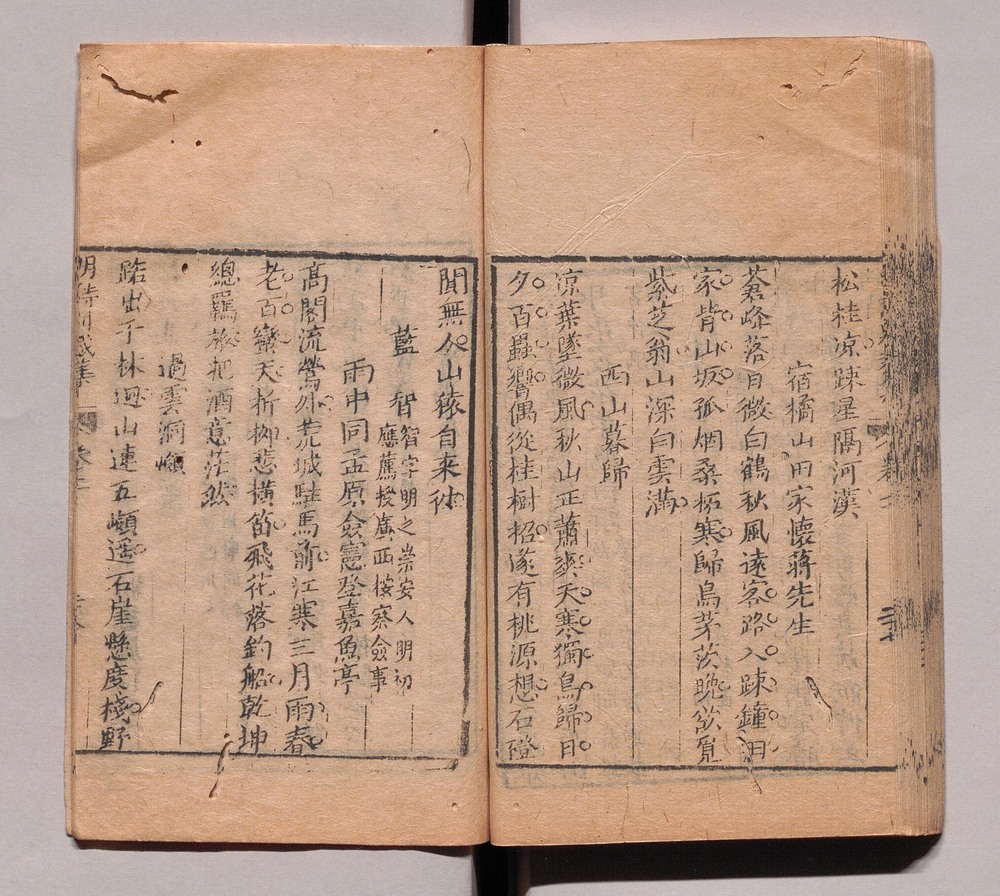 松桂凉疎星隔河漢
宿橘山田家懷蔣先生
蒼峰落日微白鶴秋風遠客路入疎鐘田
家背山坂孤烟桑柘寒歸鳥茅茨晚欲覓
紫芝翁山深白雲滿
西山暮歸
凉葉墜微風秋山正蕭爽天寒獨鳥歸日
夕百蟲響偶從桂樹招遂有桃源想石磴
聞無人山猿自来徃
藍智
智字明之崇安人明初
應薦授廣西按察僉事
雨中同孟原僉憲登嘉魚亭
高閣流鶯外荒城駐馬前江寒三月雨春
老百蠻天折柳悲横笛飛花落釣船乾坤
總羈旅把酒意茫然
過雲洞嶺
路出千林迥山連五嶺遥石崖懸度棧野